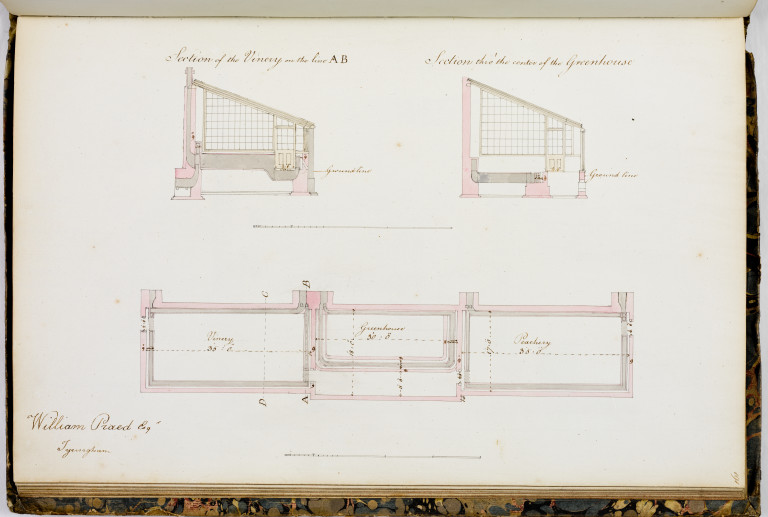 Section of the Vinery on the line AB
Section thro' the center of the Greenhouse
Ground line
Ground line
C
B
Vinery
35 : 0
Greenhouse
30 : 0
Peachery
35 : 0
D
A
William Praed Esqr
Tyringham